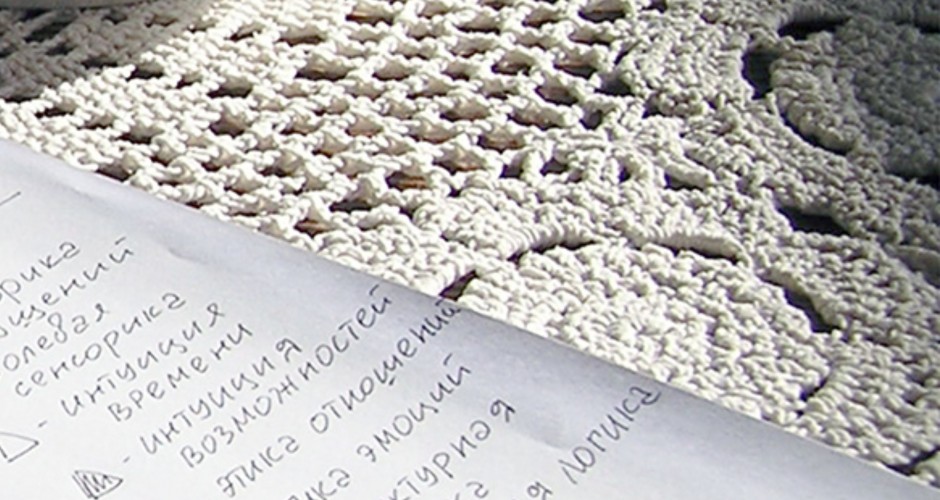 щений
олевая
сенсорика
- интуиция
времени
- интуиция
возможностей
этика отношений
эмоций
логика